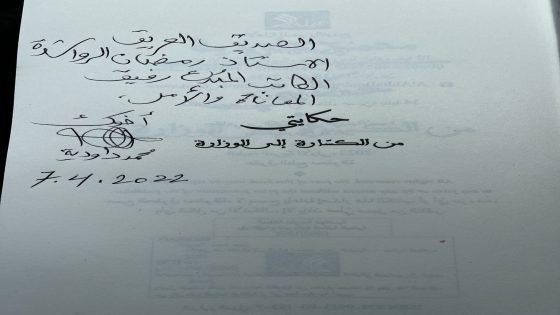 الصديق العريق
الاستاذ رمضان الرواشدة
الكاتب المبدع رفيق
المعاناة والأمل.
أخوك
حكايتي
من الكسّارة إلى الوزارة
محمد داودية
7.4.2022